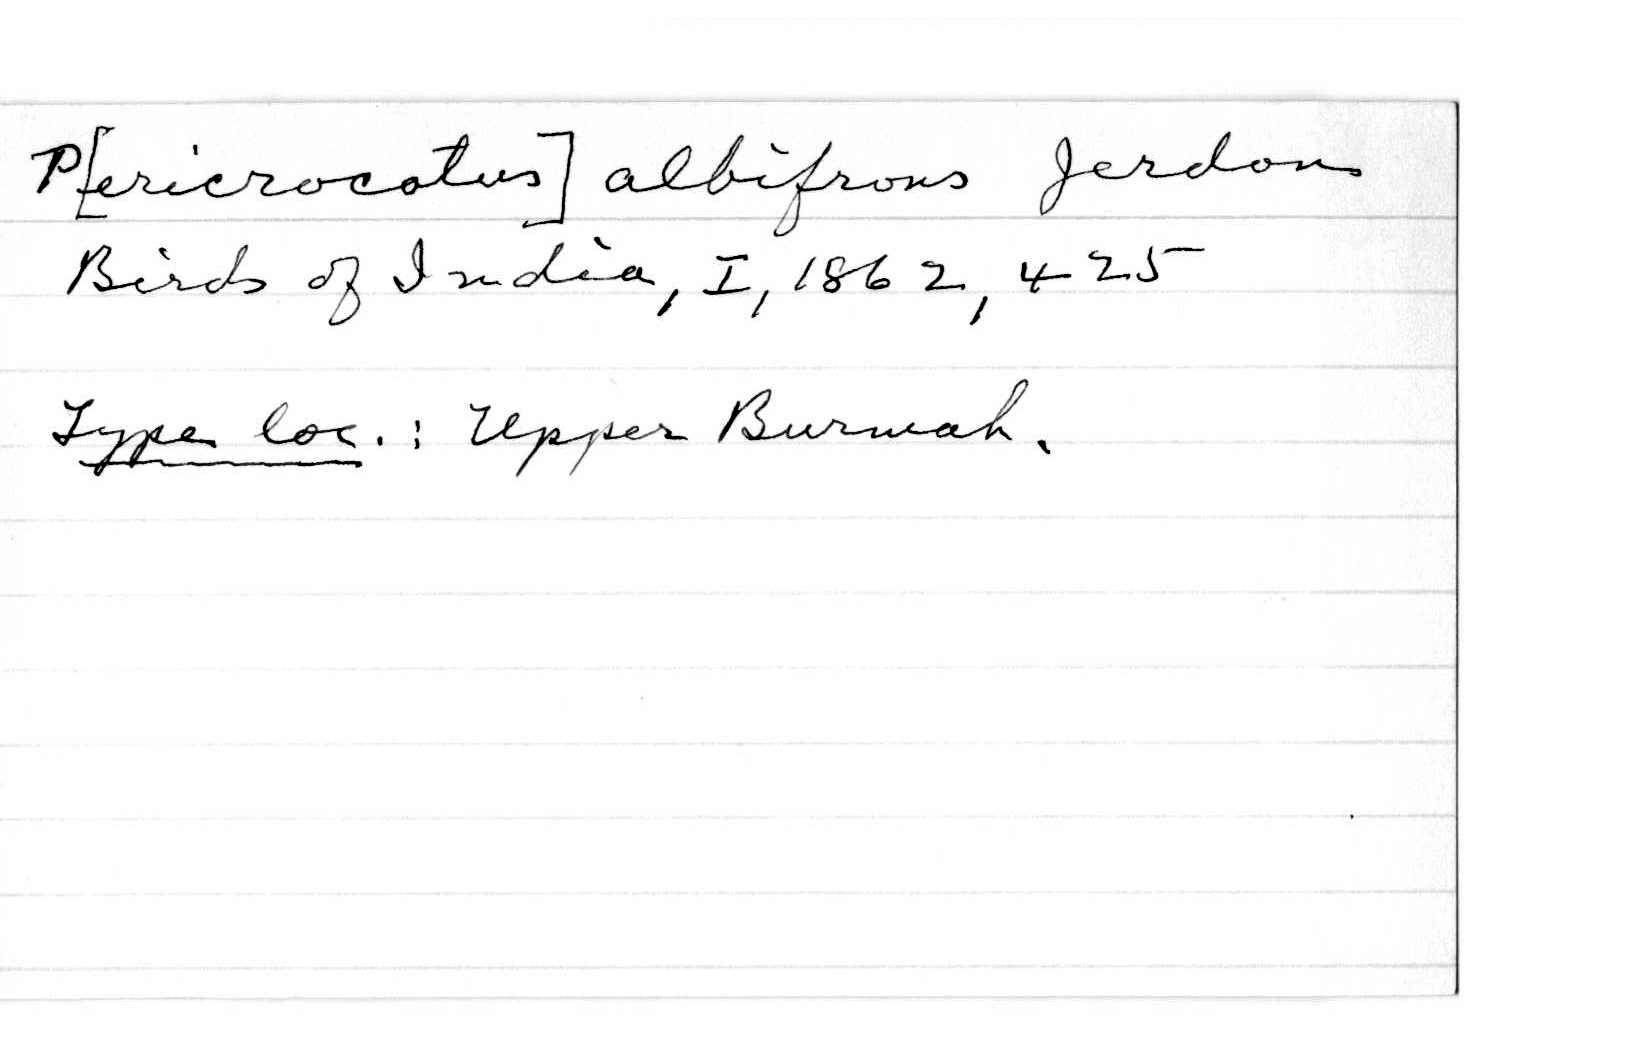 P[ericrocotus] albifrons Jerdon
Birds of India, I, 1862, 425
Type loc.: Upper Burmah.